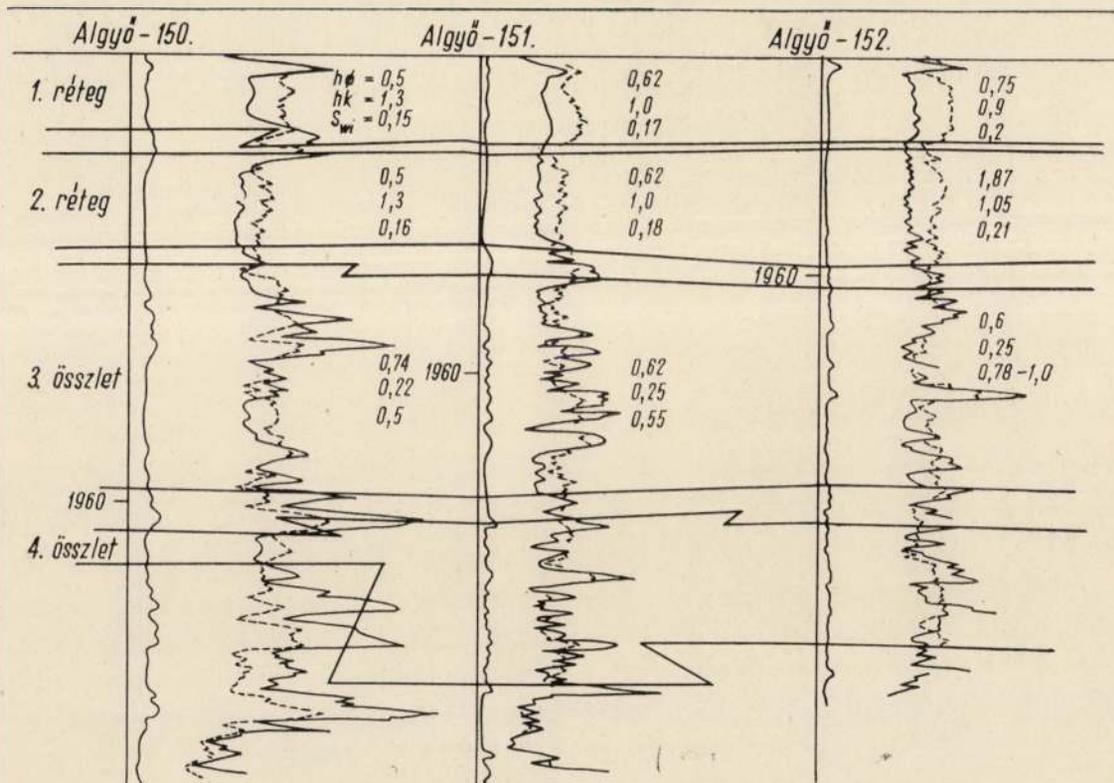 Algyő-150.
Algyő-151.
Algyő-152.
1. réteg
hø = 0,5
hk = 1,3
Swi = 0,15
0,62
1,0
0,17
0,75
0,9
0,2
2. réteg
0,5
1,3
0,16
0,62
1,0
0,18
1,87
1,05
0,21
1960
3. összlet
0,74
0,22
0,5
1960
0,62
0,25
0,55
0,6
0,25
0,78-1,0
1960
4. összlet